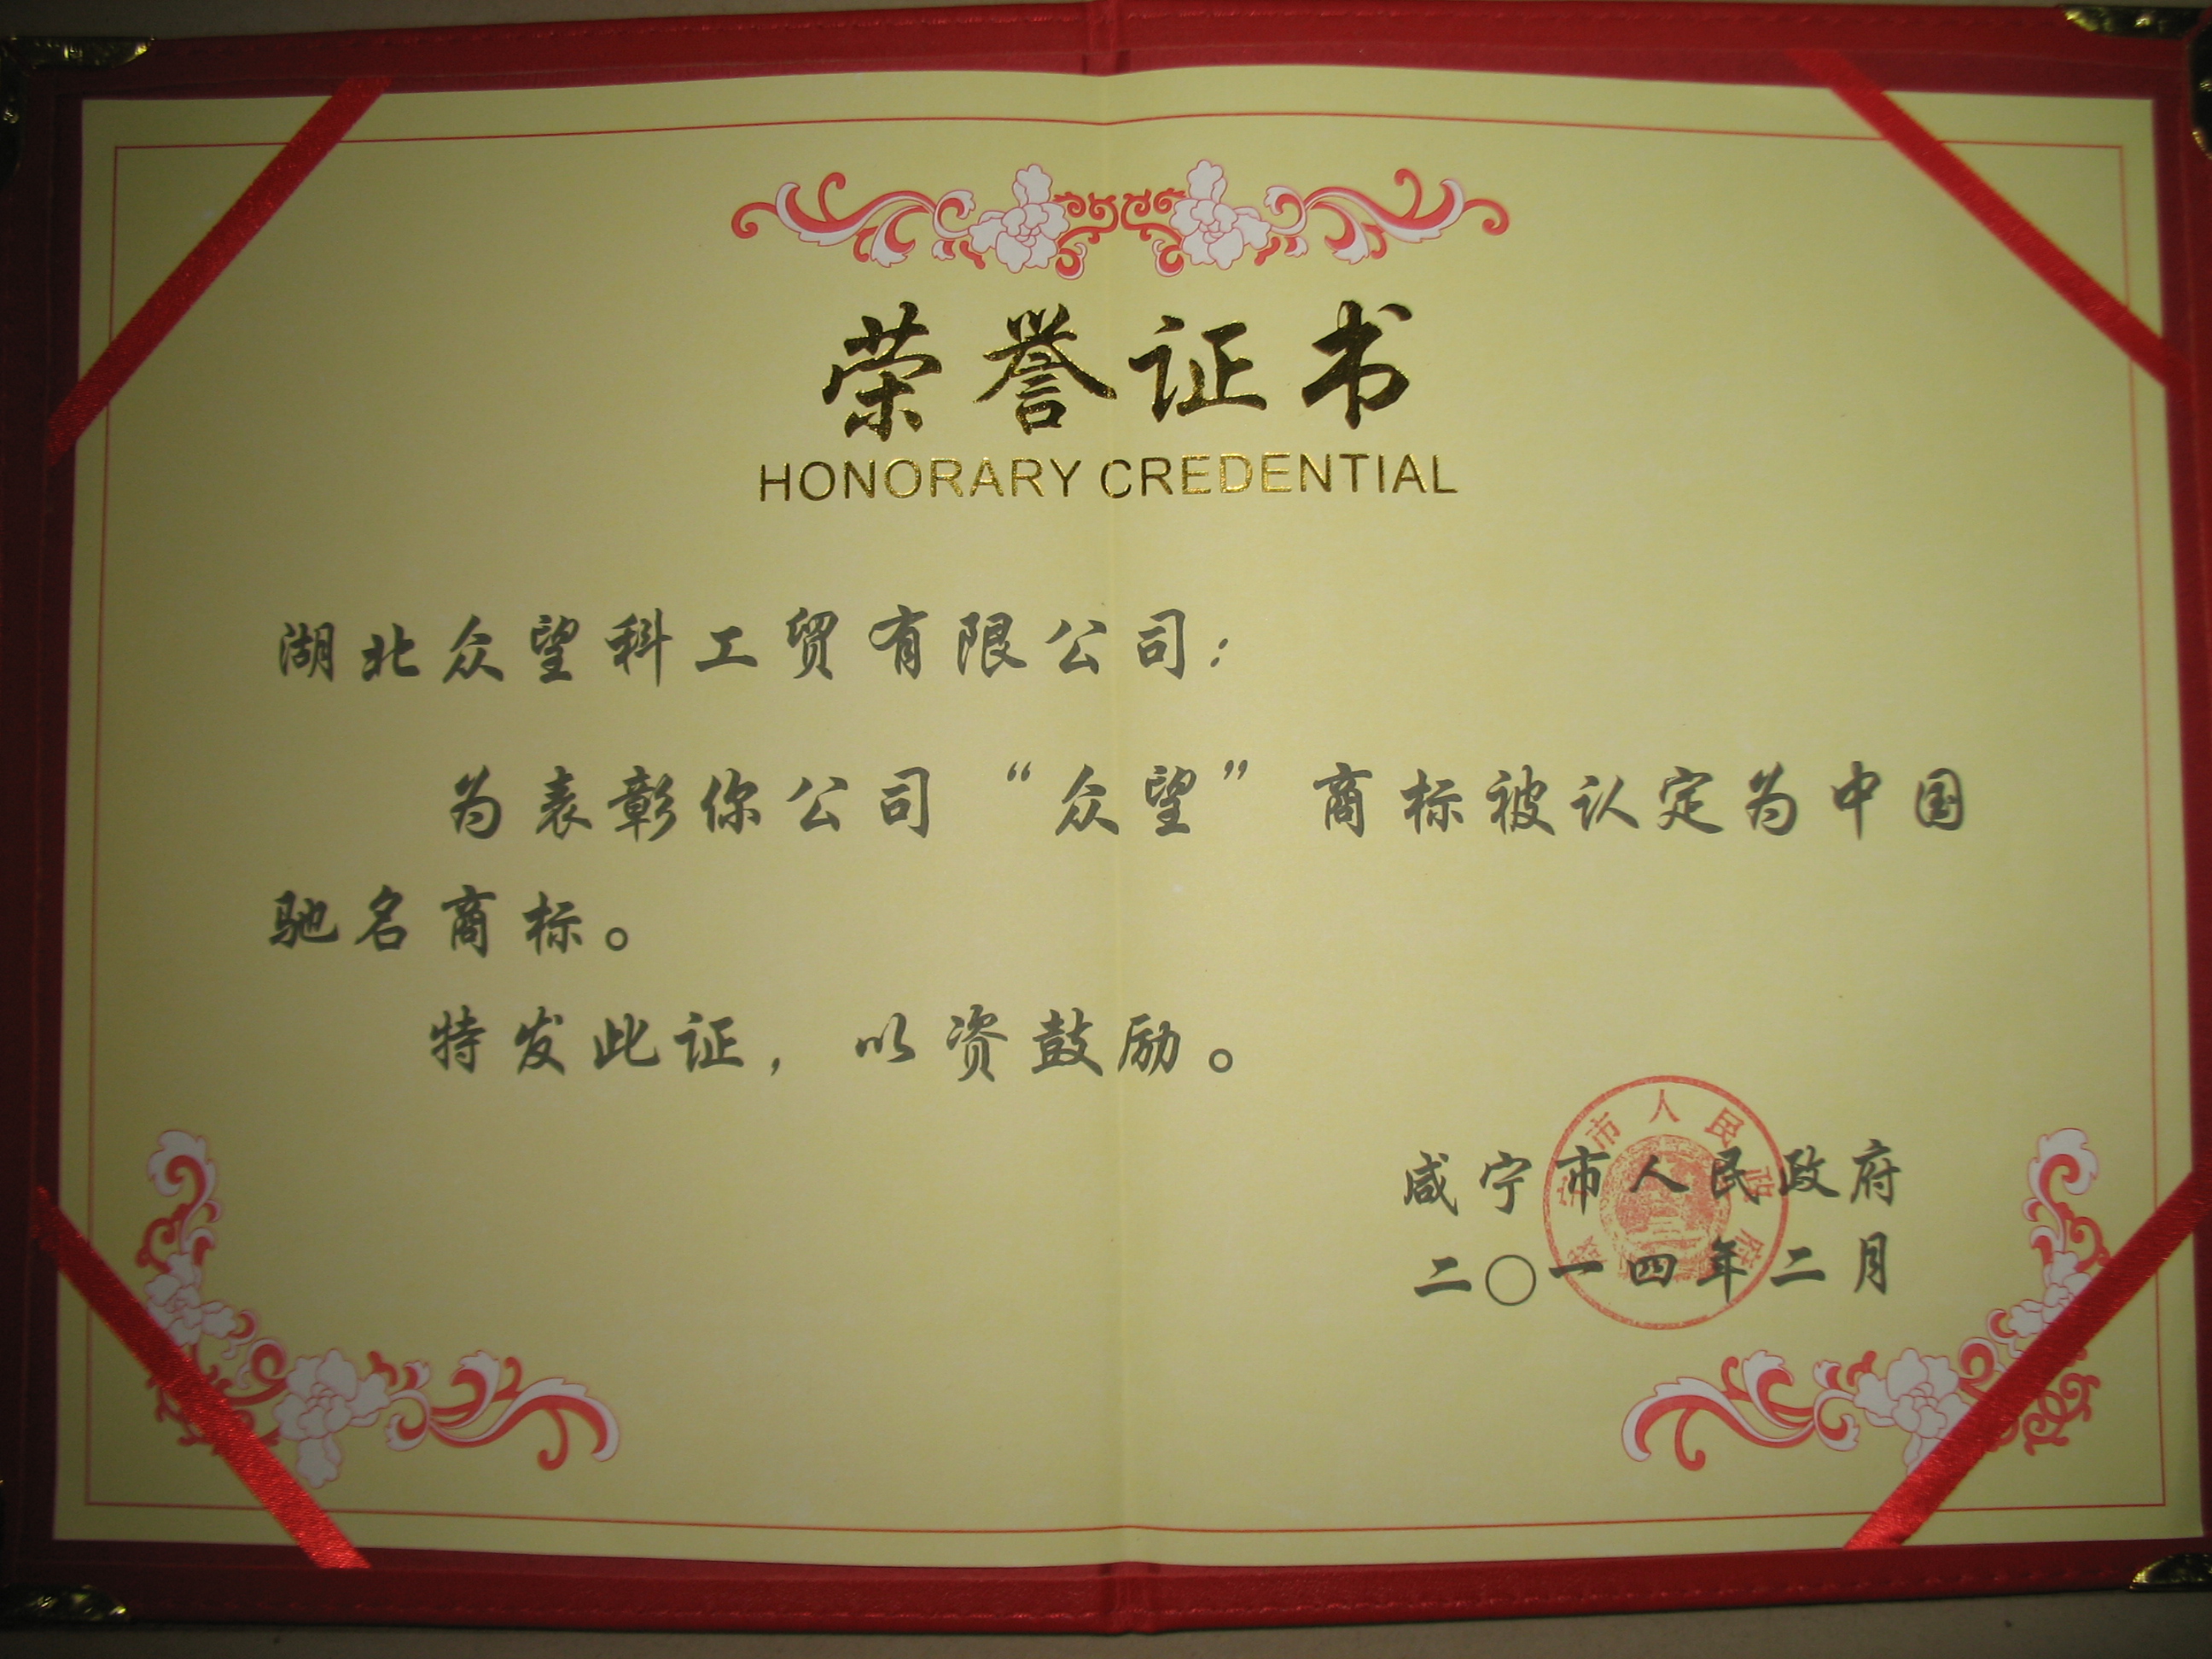 荣誉证书
HONORARY CREDENTIAL
湖北众望科工贸有限公司：
为表彰你公司“众望”商标被认定为中国
驰名商标。
特发此证，以资鼓励。
咸宁市人民政府
二〇一四年二月
咸宁市人民政府